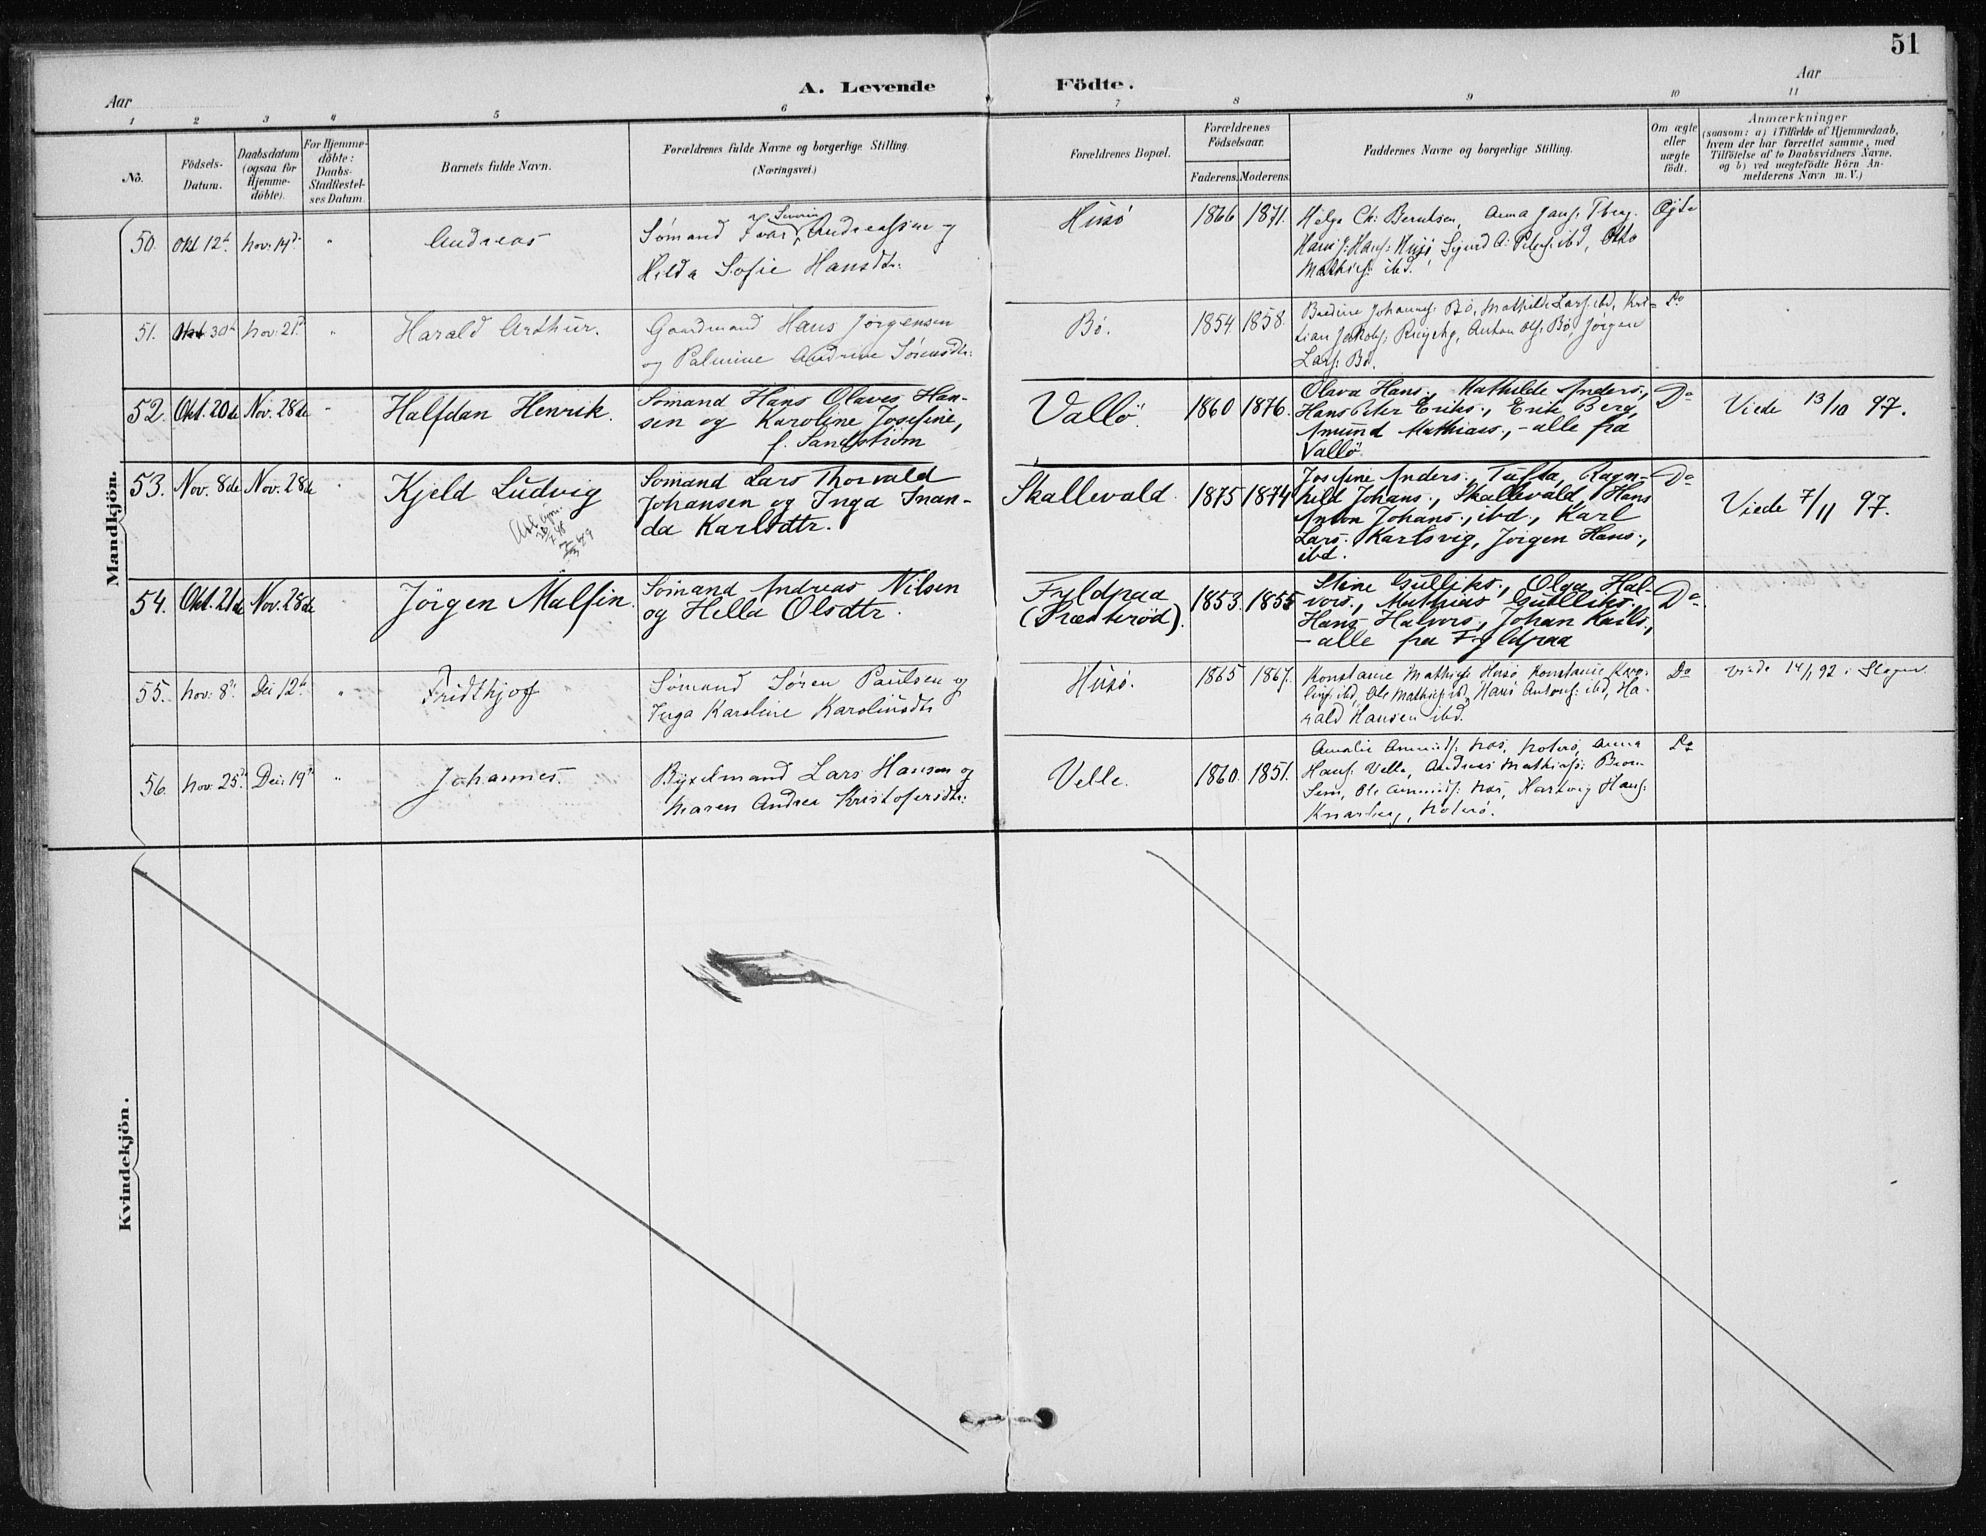 51
Aar
A. Levende Födte.
Aar
1 2 3 4 5 6 7 8 9 10 11
No.
Födsels-
Datum.
Daabsdatum
(ogsaa for
Hjemme-
döbte).
For Hjemme-
döbte:
Daabs-
Stadfæstel-
ses Datum.
Barnets fulde Navn.
Forældrenes fulde Navne og borgerlige Stilling.
(Næringsvei.)
Forældrenes Bopæl.
Forældrenes
Födselsaar.
Faderens. Moderens.
Faddernes Navne og borgerlige Stilling.
Om ægte
eller
uægte
födt.
Anmærkninger
(saasom: a) i Tilfælde af Hjemmedaab,
hvem der har forrettet samme, med
Tilföielse af to Daabsvidners Navne.
og b) ved uægtefödte Börn An-
melderens Navn m. V.)
Mandkjön.
50. Okt 12t. Nov: 14d. "
Andreas
Severin
Sømand Ivar Andreassen og
Hilda Sofie Hansdtr.
Husø
1866 1871.
Helga Ch: Berntsen, Anna Jans: Tberg.
Hans J: Hans: Husø, Sigurd A: Peters: ibd, Otto
Mathias: ibd.
Ægte
51. Okt 30t Nov: 21d "
Harald Arthur.
Gaardmand Hans Jørgensen
og Palmine Andrine Sörensdtr:
Bø.
1854 1858.
Johannes: Bø, Mathilde Lars: ibd, Kri-
stian Jakobs: Ringshg, Anton Ols: Bø, Jörgen
Lars: Bø.
Do
52. Okt. 20de Nov. 28de "
Halfdan Henrik.
Sömand Hans Olaves Han-
sen og Karoline Josefine,
f. Sandström
Vallö.
1860 1876.
Olava Hans., Mathilde Anders.,
Hans Peter Eriks., Erik Berg,
Amund Mathias., - alle fra
Vallö.
Do
Viede 13/10 97.
53. Nov. 8de Nov. 28de "
Kjeld Ludvig
Sömand Lars Thorvald
Johansen og Inga Inan-
da Karlsdtr.
Skallevald.
1875 1874
Josefine Anders., Tufta, Ragn-
hild Johans., Skallevald, Hans
Anton Johans., ibd., Karl
Lars. Karlsvig, Jörgen Hans.,
ibd.
Do
Viede 7/11 97.
54. Okt. 21de Nov. 28de "
Jörgen Malfin.
Sömand Andreas Nilsen
og Hella Olsdtr.
Fyldpaa
(Presterød).
1853. 1855
Stine Gulliks., Olga Hal-
vors., Mathias Gulliks.,
Hans Halvors., Johan Karls.,
- alle fra Fyldpaa
Do
55. Nov: 8d. Dec 12t. "
Fridthjof
Sømand Søren Paulsen og
Inga Karoline Karolinsdtr
Husø.
1865 1867.
Konstanse Mathias: Husø, Konstanse Karo-
lius: ibd, Ole Mathias: ibd, Hans Antons: ibd, Ha-
rald Hansen ibd.
Do
viede 14/1 92 i Slagen.
56. Nov: 25d. Dec: 19d. "
Johannes.
Byxelmand Lars Hansen og
Maren Andrea Kristofersdtr:
Velle.
1860. 1851.
Amalie Amunds: Næs, Nøterø, Anna
Hans: Velle, Andreas Mathias:
Sem, Ole Amunds: Næs, Hartvig Hans:
Knarberg, Nøterø.
Do
Kvindekjön.